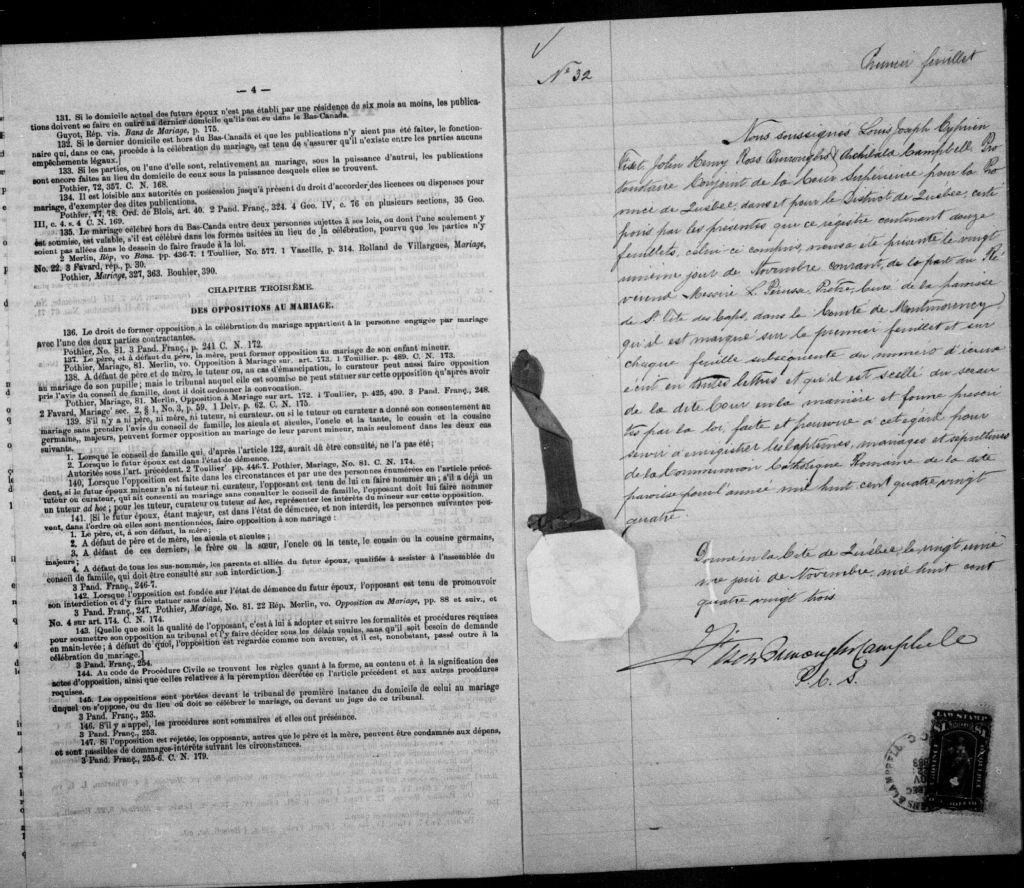 — 4 —
131. Si le domicile actuel des futurs époux n'est pas établi par une résidence de six mois au moins, les publica-
tions doivent se faire en outre au dernier domicile qu'ils ont eu dans le Bas-Canada.
Guyot, Rép. vis. Bans de Mariage, p. 175.
132. Si le dernier domicile est hors du Bas-Canada et que les publications n'y aient pas été faites, le fonction-
naire qui, dans ce cas, procède à la célébration du mariage, est tenu de s'assurer qu'il n'existe entre les parties aucuns
empêchements légaux.]
133. Si les parties, ou l'une d'elles, sont, relativement au mariage, sous la puissance d'autrui, les publications
sont encore faites au lieu du domicile de ceux sous la puissance desquels elles se trouvent.
Pothier, 72, 357. C. N. 168.
134. Il est loisible aux autorités en possession jusqu'à présent du droit d'accorder des licences ou dispenses pour
mariage, d'exempter des dites publications.
Pothier, 77, 78. Ord. de Blois, art. 40. 2 Pand. Franç., 324. 4 Geo. IV, c. 76 en plusieurs sections, 35 Geo.
III, c. 4, s. 4 C. N. 169.
135. Le mariage célébré hors du Bas-Canda entre deux personnes sujettes à ses lois, ou dont l'une seulement y
est soumise, est valable, s'il est célébré dans les formes usitées au lieu de la célébration, pourvu que les parties n'y
soient pas allées dans le dessein de faire fraude à la loi.
2 Merlin, Rép, vo Bans. pp. 436-7. 1 Toullier, No. 577. 1 Vazeille, p. 314. Rolland de Villargues, Mariage,
No. 22. 3 Favard, rép., p. 30.
Pothier, Mariage, 327, 363. Bouhier, 390.
CHAPITRE TROISIÉME.
DES OPPOSITIONS AU MARIAGE.
136. Le droit de former opposition à la célébration du mariage appartient à la personne engagée par mariage
avec l'une des deux parties contractantes.
Pothier, No. 81. 3 Pand. Franç., p. 241 C. N. 172.
137. Le père, et à défaut du père, la mère, peut former opposition au mariage de son enfant mineur.
Pothier, Mariage, 81. Merlin, vo. Opposition à Mariage sur. art. 173. 1 Touillier. p. 489. C. N. 173.
138. A défaut de père et de mère, le tuteur ou, au cas d'émancipation, le curateur peut aussi faire opposition
au mariage de son pupille; mais le tribunal auquel elle est soumise ne peut statuer sur cette opposition qu'après avoir
pris l'avis du conseil de famille, dont il doit ordonner la convocation.
Pothier, Mariage, 81. Merlin, Opposition à Mariage sur art. 172. 1 Toullier, p. 425, 490. 3 Pand. Franç., 248.
2 Favard, Mariage sec. 2, § 1, No. 3, p. 59. 1 Delv, p. 62. C. N. 175.
139. S'il n'y a ni père, ni mère, ni tuteur, ni curateur, ou si le tuteur ou curateur a donné son consentement au
mariage sans prendre l'avis du conseil de famille, les aieuls et aieules, l'oncle et la tante, le cousin et la cousine
germains, majeurs, peuvent former opposition au mariage de leur parent mineur, mais seulement dans les deux cas
suivants,
1. Lorsque le conseil de famille qui, d'après l'article 122, aurait dû être consulté, ne l'a pas été;
2. Lorsque le futur époux est dans l'état de démence.
Autorités sous l'art. précédent. 2 Toullier pp. 446-7. Pothier, Mariage, No. 81. C. N. 174.
140. Lorsque l'opposition est faite dans les circonstances et par une des personnes énumérées en l'article précé-
dent, si le futur époux mineur n'a ni tuteur ni curateur, l'opposant est tenu de lui en faire nommer un; s'il a déjà un
tuteur ou curateur, qui ait consenti au mariage sans consulter le conseil de famille, l'opposant doit lui faire nommer
un tuteur ad hoc; pour les tuteur, curateur ou tuteur ad hoc, représenter les intérêts du mineur sur cette opposition.
141. [Si le futur époux, étant majeur, est dans l'état de démence, et non interdit, les personnes suivantes peu-
vent, dans l'ordre où elles sont mentionnées, faire opposition à son mariage:
1. Le père, et, à son défaut, la mère;
2. A défaut de père et de mère, les aieuls et aieules;
3. A défaut de ces derniers, le frère ou la sœur, l'oncle ou la tente, le cousin ou la cousine germains,
majeurs;
4. A défaut de tous les sus-nommés, les parents et alliés du futur époux, qualifiés à assister à l'assemblée du
conseil de famille, qui doit être consulté sur son interdiction.]
3 Pand. Franç., 246-7.
142. Lorsque l'opposition est fondée sur l'état de démence du futur époux, l'opposant est tenu de promouvoir
son interdiction et d'y faire statuer sans délai.
3 Pand. Franç., 247. Pothier, Mariage, No. 81. 22 Rép. Merlin, vo. Opposition au Mariage, pp. 88 et suiv., et
No. 4 sur art. 174. C. N. 174.
143. [Quelle que soit la qualité de l'opposant, c'est à lui à adopter et suivre les formalités et procédures requises
pour soumettre son opposition au tribunal et l'y faire décider sous les délais voulus, sans qu'il soit besoin de demande
en main-levée; à défaut de quoi, l'opposition est regardée comme non avenue, et il est, nonobstant, passé outre à la
célébration du mariage.]
3 Pand. Franç., 254.
144. Au code de Procédure Civile se trouvent les règles quant à la forme, au contenu et à la signification des
actes d'opposition, ainsi que celles relatives à la péremption décrétée en l'article précédent et aux autres procédures
requises.
145. Les oppositions sont portées devant le tribunal de première instance du domicile de celui au mariage
duquel on s'oppose, ou du lieu où doit se célébrer le mariage, ou devant un juge de ce tribunal.
3 Pand. Franç., 253.
146. S'il y a appel, les procédures sont sommaires et elles ont préséance.
3 Pand. Franç., 253.
147. Si l'opposition est rejetée, les opposants, autres que le père et la mère, peuvent être condamnés aux dépens,
et sont passibles de dommages-intérêts suivant les circonstances.
3 Pand. Franç., 255-6. C. N. 179.
No 32
Premier feuillet
Nous soussignés Louis Joseph Cyprien
Fiset, John Henry Ross Burroughs & Archibald Campbell Pro
tonotaire Conjoint de la Cour Supérieure pour la Pro
vince de Québec, dans et pour le District de Québec, certi
fions par les présentes que ce registre contenant douze
feuillets, celui-ci compris, nous a été présenté le vingt
unième jour de Novembre courant, de la part du Ré
vérend Messire L. Prêtre, Curé de la paroisse
de St Tite des Caps, dans le Comté de Montmorency
qu'il est marqué sur le premier feuillet et sur
chaque feuille subséquente du numéro d'iceux
écrit en toutes lettres et qu'il est scellé du sceau
de la dite Cour en la manière et forme prescri
tes par la loi, faite et pourvue à cet égard, pour
servir à enregistrer les baptêmes, mariages et sépultures
de la Communion Catholique Romaine de la dite
paroisse pour l'année mil huit cent quatre vingt
quatre.
Donné en la Cité de Québec, le vingt uniè
me jour de Novembre, mil huit cent
quatre vingt trois
Fiset Burroughs Campbell
P. C. S.
LAW STAMP